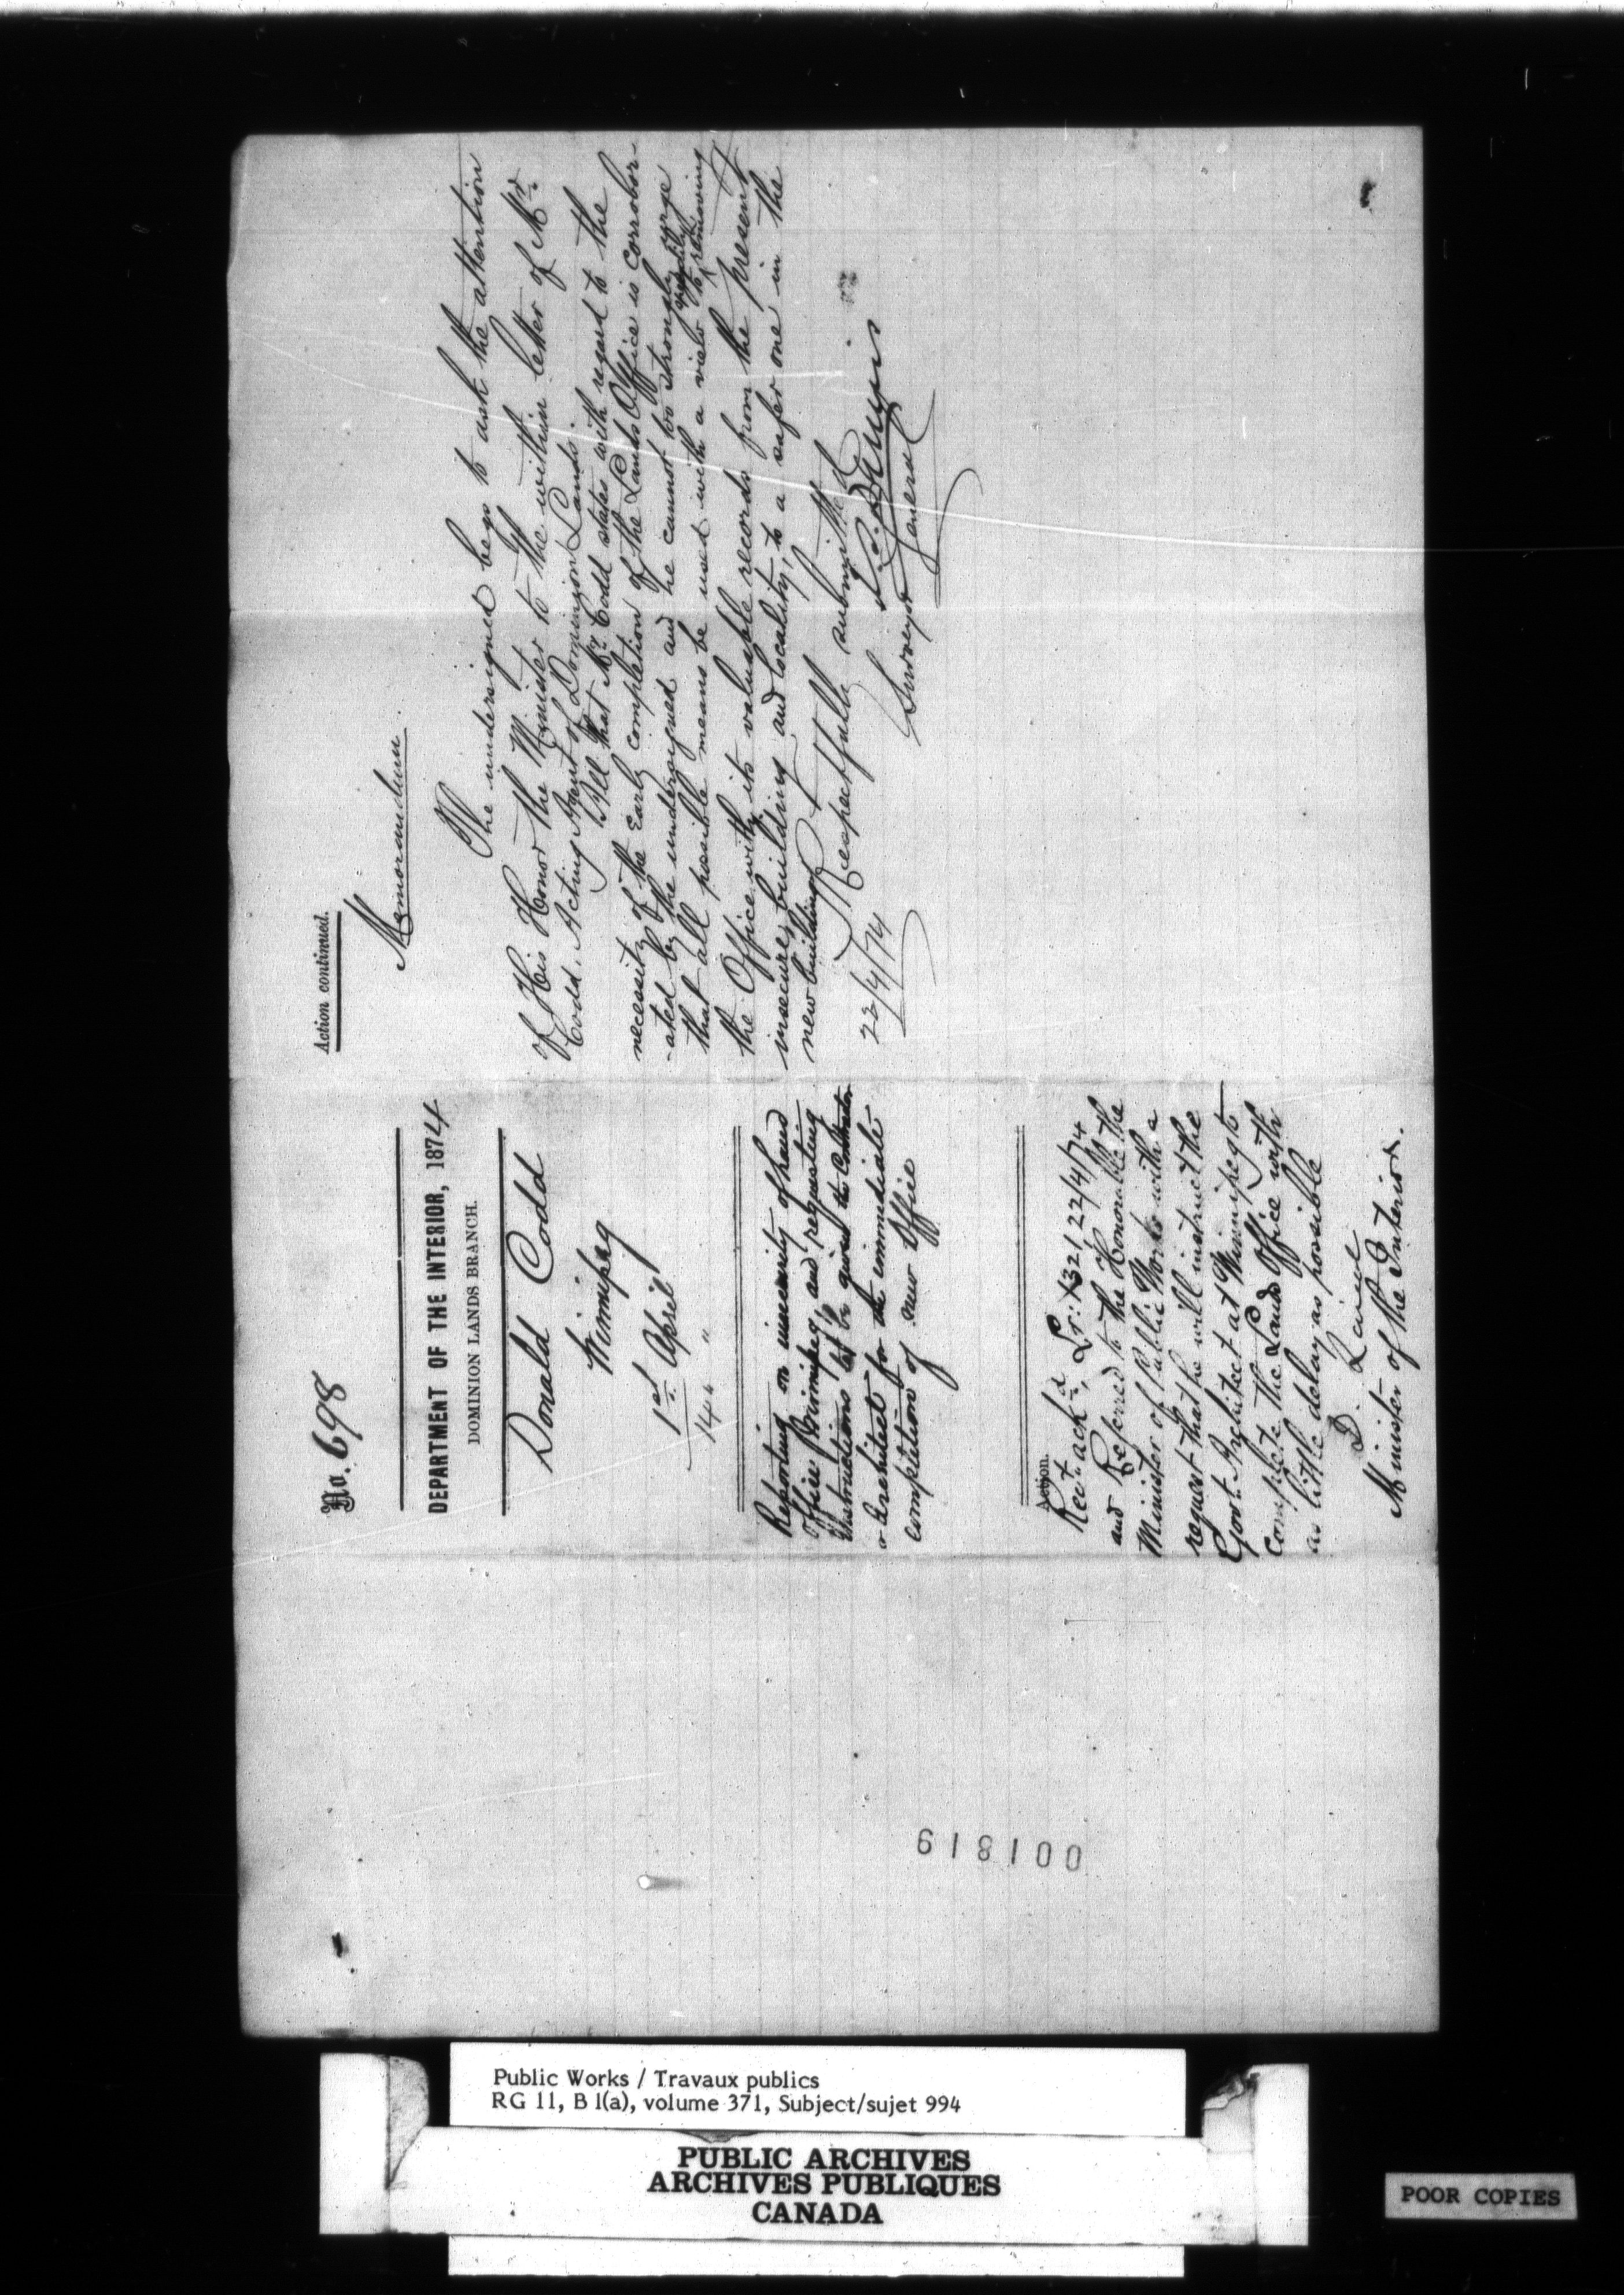 No. 698
DEPARTMENT OF THE INTERIOR, 1874
DOMINION LANDS BRANCH.
Donald Codd
Winnipeg
1st April
144 "
Reporting on insecurity of Land
Office Winnipeg and requesting
Instructions to be given the Contractor
& architect for the immediate
completion of new Office
Action.
Rect ackd, Lr: 1321 22/4/74
and Referred to the Honorable the
Minister of Public Works with a
request that he will instruct the
Govt. Architect at Winnipeg to
complete the Lands Office with
as little delay as possible
D. Laird
Minister of the Interior.
Action continued.
Memorandum
The undersigned begs to ask the attention
of His Honor the Minister to the within letter of Mr.
Codd, Acting Agent of Dominion Lands.
All that Mr. Codd states with regard to the
necessity of the early completion of the Lands Office is corrobor-
-ated by the undersigned and he cannot too strongly urge
that all possible means be used with a view to speedily removing
the Office with its valuable records from the present
insecure building and locality, to a safer one in the
new building.
Respectfully submitted
J. S. Dennis
Surveyor General
22/4/74
001819
Public Works / Travaux publics
RG 11, B 1(a), volume 371, Subject/sujet 994
PUBLIC ARCHIVES
ARCHIVES PUBLIQUES
CANADA
POOR COPIES